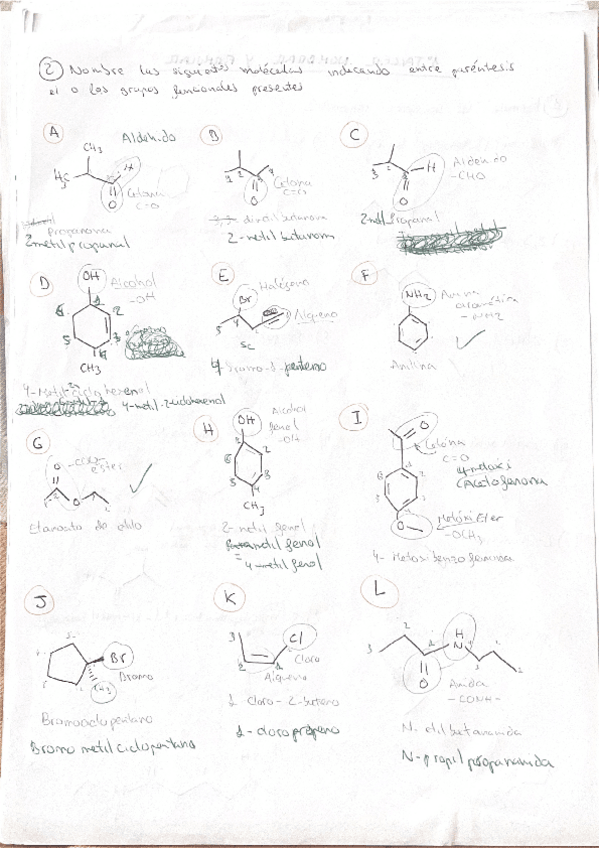 2 Nombre las siguientes moléculas indicando entre paréntesis
el o los grupos funcionales presentes
A
Aldehido
CH3
H3C
H
O
Cetona
C=O
Propanona
2metil propanal
B
1 2
O
Cetona
C=O
dimetil butanona
2-metil butanona
C
3 2
H
O
Aldehido
-CHO
2metil Propanal
D
OH
Alcohol
-OH
2
3
5
CH3
4-Metil ciclohexenol
4-metil-2-ciclohexenol
E
Halógeno
Br
Alqueno
4-Bromo-1-penteno
F
NH2
Amina
aromática
-NH2
Anilina
G
O
ester
O
Etanoato de etilo
H
OH
Alcohol
fenol
-OH
2
6
3
5
4
CH3
2-metil fenol
metil fenol
=
4-metil fenol
I
O
Cetona
C=O
4-metoxi
Acetofenona
O
Metóxi Eter
-OCH3
4-Metoxibenzofenona
J
Br
Bromo
CH3
Bromociclopentano
Bromo metil ciclopentano
K
3
2 1
Cl
Cloro
Alqueno
1 Cloro-2-buteno
1-cloropropeno
L
H
N
3 2 1
O
Amida
-CONH-
N-etil butanamida
N-propil propanamida